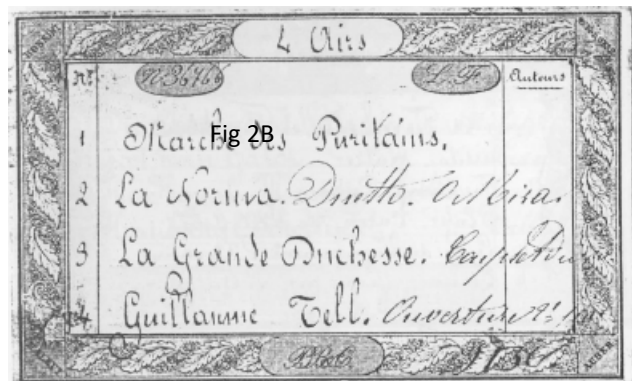 4 Airs
No. N 36766 L. F. Auteurs
1 Marche des Puritains.
Fig 2B
2 La Norma. Duetto. O Mira.
3 La Grande Duchesse.
4 Guillaume Tell. Ouverture
AUBER